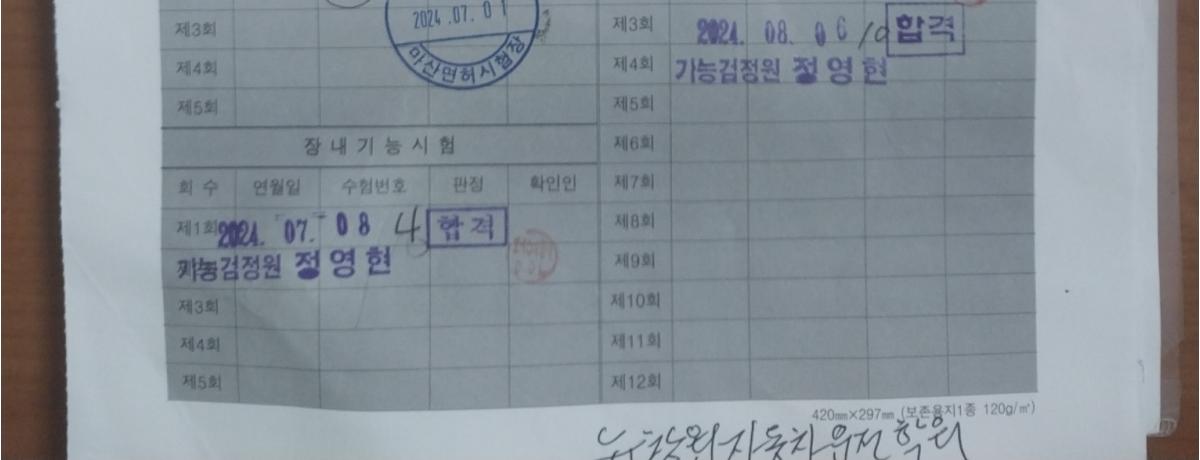 제3회
2024.07.01
마산면허시험장
제4회
제5회
장내기능시험
회 수 연월일 수험번호 판정 확인인
제1회 2024. 07. 08 4 합격
기능검정원 정영현
제3회
제4회
제5회
제3회 2024. 08. 06 10 합격
제4회 기능검정원 정영현
제5회
제6회
제7회
제8회
제9회
제10회
제11회
제12회
420㎜×297㎜ (보존용지1종 120g/㎡)
창원자동차운전학원